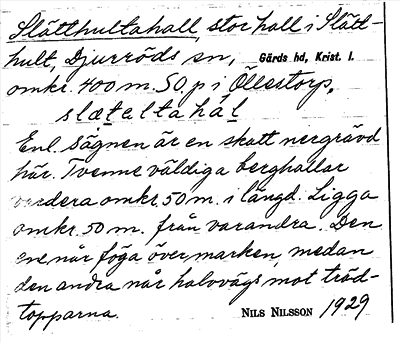 Slätthultahall, stor hall i Slätt-
hult, Djurröds sn, Gärds hd, Krist. l.
omkr. 400 m. SO p i Öllestorp.
slætaltahál
Enl. sägnen är en skatt nergrävd
här. Tvenne väldiga berghallar
vardera omkr. 50 m. i längd. Ligga
omkr. 50 m. från varandra. Den
ene når föga över marken, medan
den andra når halvvägs mot träd-
topparna. NILS NILSSON 1929